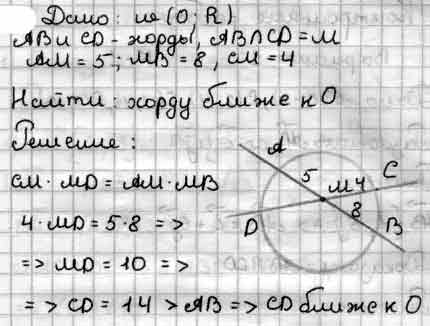 Дано: ω (O; R)
AB и CD - хорды, AB∩CD = M
AM = 5; MB = 8, CM = 4
Найти: хорду ближе к O
Решение:
CM · MD = AM · MB
4 · MD = 5 · 8 =>
=> MD = 10 =>
=> CD = 14 > AB => CD ближе к O
A
5
M 4
C
8
D
B